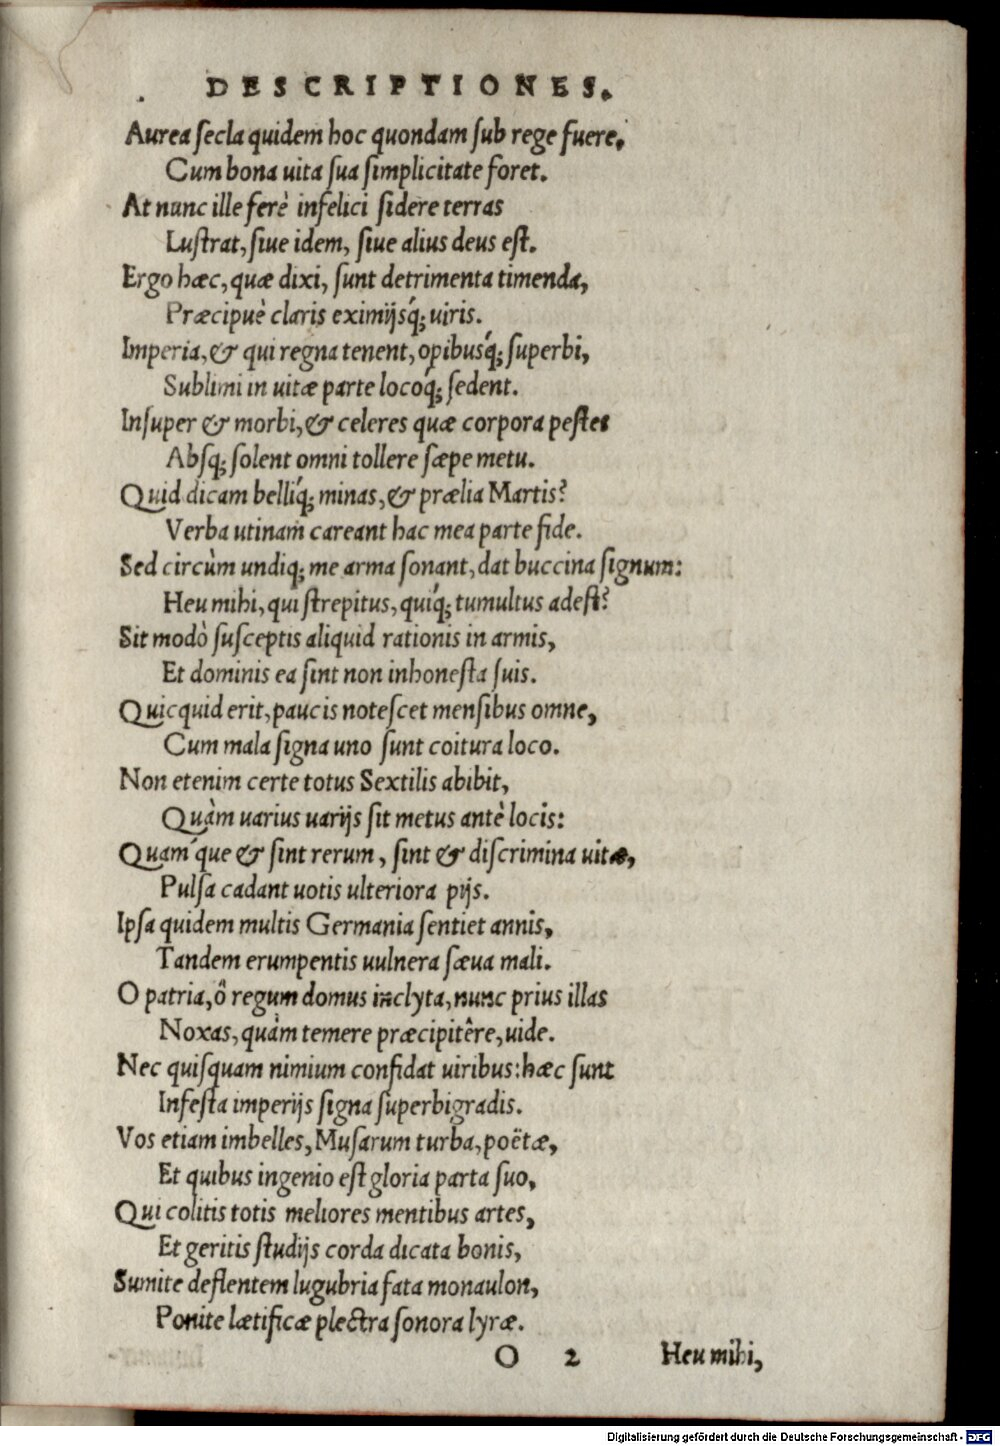 DESCRIPTIONES.
Aurea ſecla quidem hoc quondam ſub rege fuere,
Cum bona uita ſua ſimplicitate foret.
At nunc ille ferè infelici ſidere terras
Luſtrat, ſiue idem, ſiue alius deus eſt.
Ergo hæc, quæ dixi, ſunt detrimenta timenda,
Præcipuè claris eximijsq́; uiris.
Imperia, & qui regna tenent, opibusq́; ſuperbi,
Sublimi in uitæ parte locoq́; ſedent.
Inſuper & morbi, & celeres quæ corpora peſtes
Abſq; ſolent omni tollere ſæpe metu.
Quid dicam belliq́; minas, & prælia Martis?
Verba utinam careant hac mea parte fide.
Sed circùm undiq; me arma ſonant, dat buccina ſignum:
Heu mihi, qui ſtrepitus, quíq; tumultus adeſt?
Sit modò ſuſceptis aliquid rationis in armis,
Et dominis ea ſint non inhoneſta ſuis.
Quicquid erit, paucis noteſcet menſibus omne,
Cum mala ſigna uno ſunt coitura loco.
Non etenim certe totus Sextilis abibit,
Quàm uarius uarijs ſit metus antè locis:
Quam'que & ſint rerum, ſint & diſcrimina uitæ,
Pulſa cadant uotis ulteriora pijs.
Ipſa quidem multis Germania ſentiet annis,
Tandem erumpentis uulnera ſæua mali.
O patria, ô regum domus inclyta, nunc prius illas
Noxas, quàm temere præcipitêre, uide.
Nec quiſquam nimium confidat uiribus: hæc ſunt
Infeſta imperijs ſigna ſuperbigradis.
Vos etiam imbelles, Muſarum turba, poëtæ,
Et quibus ingenio eſt gloria parta ſuo,
Qui colitis totis meliores mentibus artes,
Et geritis ſtudijs corda dicata bonis,
Sumite deflentem lugubria fata monaulon,
Ponite lætificæ plectra ſonora lyræ.
O 2 Heu mihi,
Digitalisierung gefördert durch die Deutsche Forschungsgemeinschaft - DFG